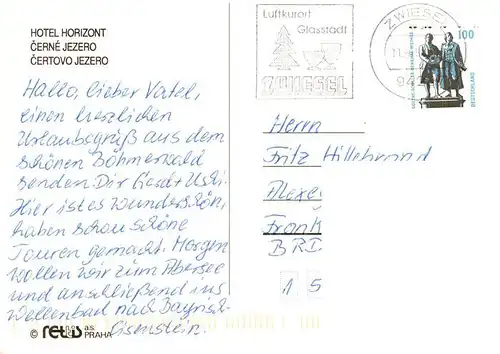 HOTEL HORIZONT
ČERNÉ JEZERO
ČERTOVO JEZERO
Hallo, lieber Vatel,
einen herzlichen
Urlaubsgrüß aus dem
schönen Böhmerwald
senden Dir Gerd + Uschi.
Hier ist es wunderschön,
haben schon schöne
Touren gemacht. Morgen
wollen wir zum Abersee
und anschließend ins
Wellenbad nach Bayrisch-
Eisenstein.
© a.s.
PRAHA
Luftkurort
Glasstadt
ZWIESEL
ZWIESEL
94
100
DEUTSCHLAND
Herrn
Fritz Hillebrand
Alexe
Frank
BRD
1 5